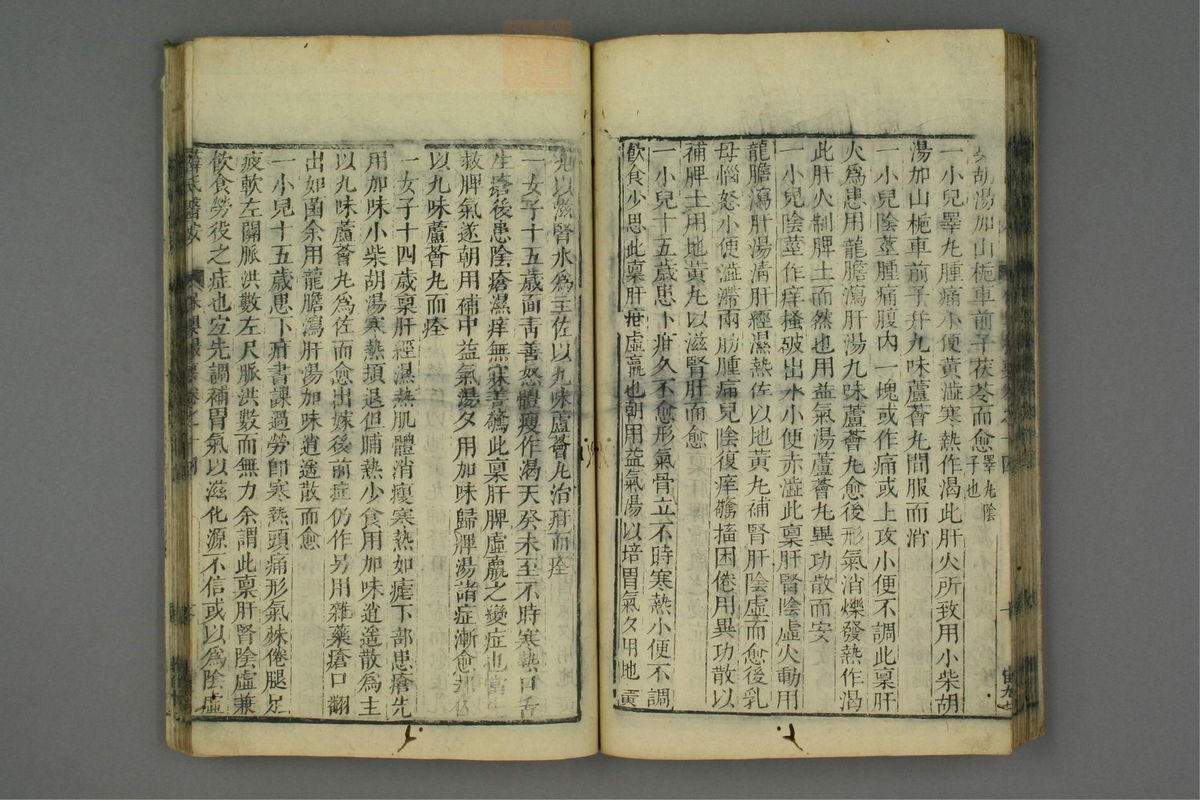 胡湯加山梔車前子茯苓而愈睪丸陰子也
一小兒睪丸腫痛小便黄澁寒熱作渴此肝火所致用小柴胡
湯加山梔車前子幷九味蘆薈丸間服而消
一小兒陰莖腫痛腹內一塊或作痛或上攻小便不調此稟肝
火爲患用龍膽瀉肝湯九味蘆薈丸愈後形氣消爍發熱作渴
此肝火制脾土而然也用益氣湯蘆薈丸異功散而安
一小兒陰莖作痒搔破出水小便赤澁此稟肝腎陰虛火動用
龍膽瀉肝湯淸肝經濕熱佐以地黄丸補腎肝陰虛而愈後乳
母惱怒小便澁滯兩肋腫痛兒陰復痒驚搐困倦用異功散以
補脾土用地黄丸以滋腎肝而愈
一小兒十五歲患下疳久不愈形氣骨立不時寒熱小便不調
飮食少思此稟肝疳虛羸也朝用益氣湯以培胃氣夕用地黄
丸以滋腎水爲主佐以九味蘆薈丸治疳而痊
一女子十五歲面靑善怒體瘦作渴天癸未至不時寒熱口舌
生瘡後患陰瘡濕痒無寐善驚此稟肝脾虛羸之變症也當
救脾氣遂朝用補中益氣湯夕用加味歸脾湯諸症漸愈
以九味蘆薈丸而痊
一女子十四歲稟肝經濕熱肌體消瘦寒熱如瘧下部患瘡先
用加味小柴胡湯寒熱頓退但晡熱少食用加味逍遥散爲主
以九味蘆薈丸爲佐而愈出嫁後前症仍作另用雜藥瘡口翻
出如菌余用龍膽瀉肝湯加味逍遥散而愈
一小兒十五歲患下疳書課過勞卽寒熱頭痛形氣殊倦腿足
疲軟左關脈洪數左尺脈洪數而無力余謂此稟肝腎陰虛兼
飮食勞役之症也宜先調補胃氣以滋化源不信或以爲陰虛